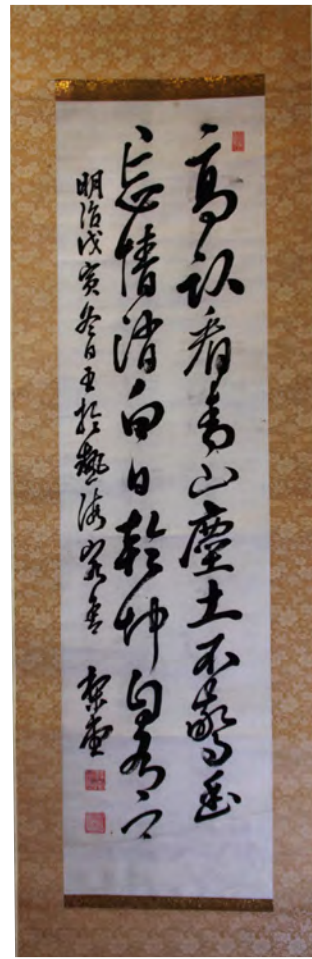 高臥看青山塵土不驚
忘情消白日乾坤自
明治戊寅冬日於熱海客舍 梨堂